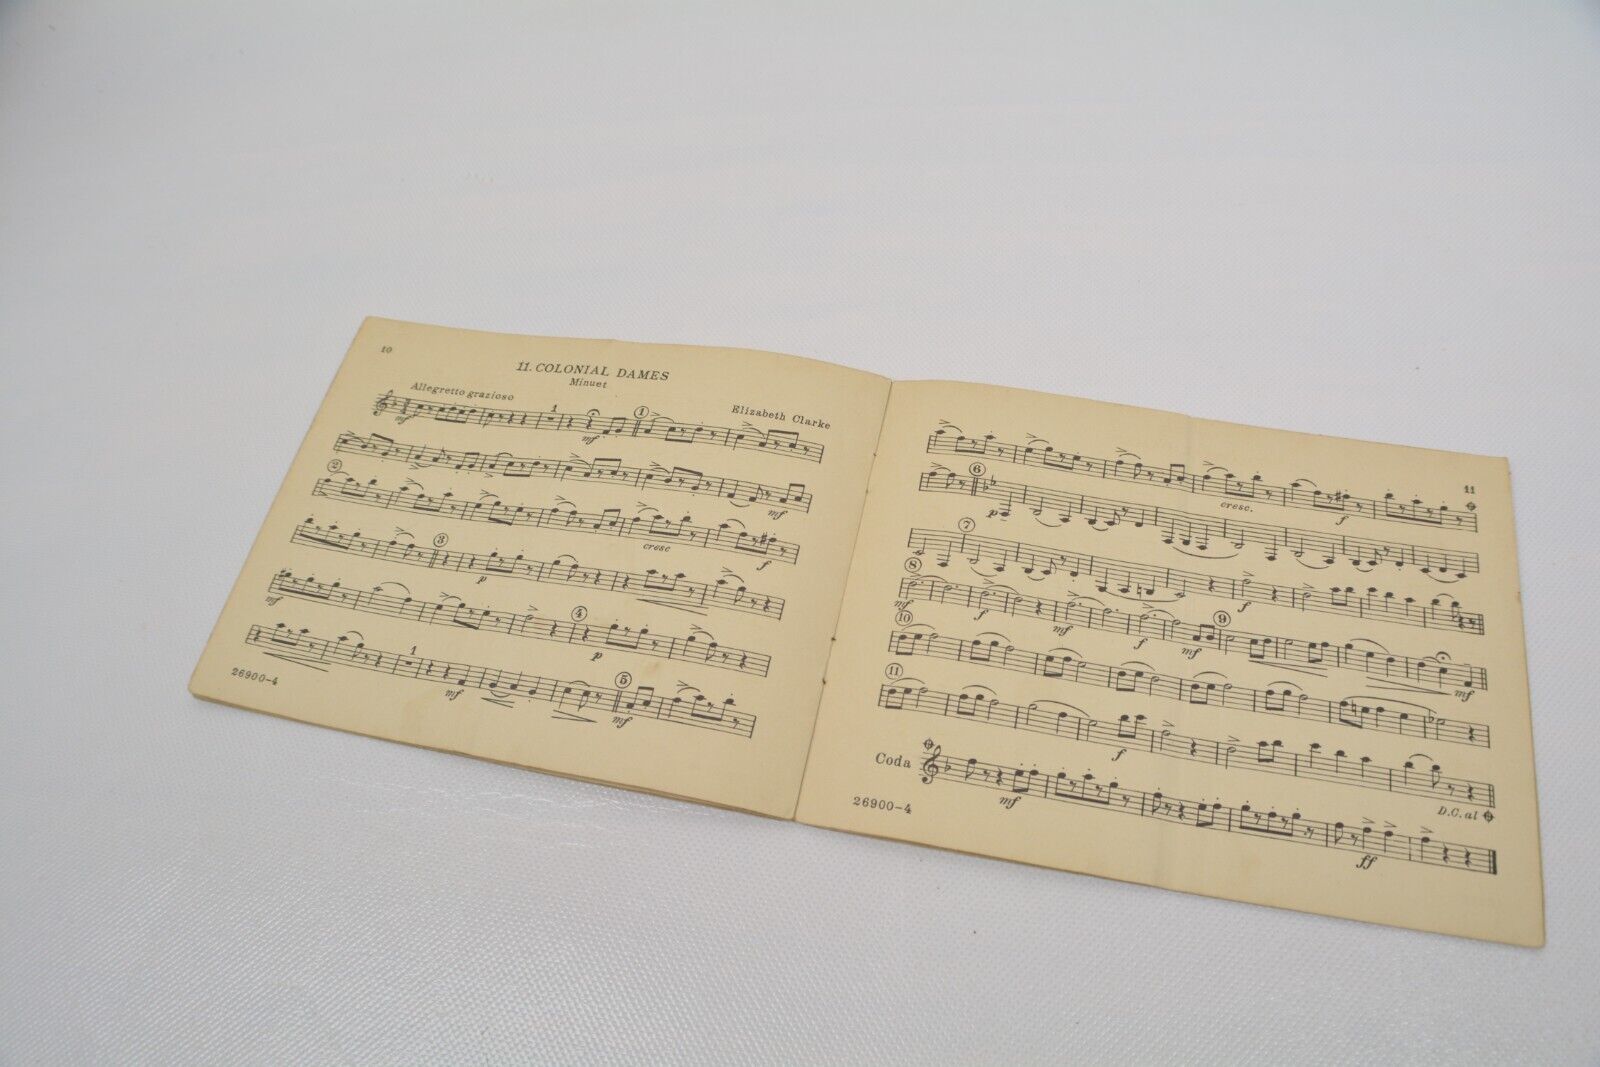 10
11. COLONIAL DAMES
Minuet
Allegretto grazioso
Elizabeth Clarke
mf
1
mf
1
mf
2
cresc
f
3
p
mf
4
p
1
mf
5
mf
26900-4
11
cresc.
f
6
p
7
f
8
mf
f
mf
f
mf
9
mf
10
11
f
D.C. al
Coda
mf
ff
26900-4